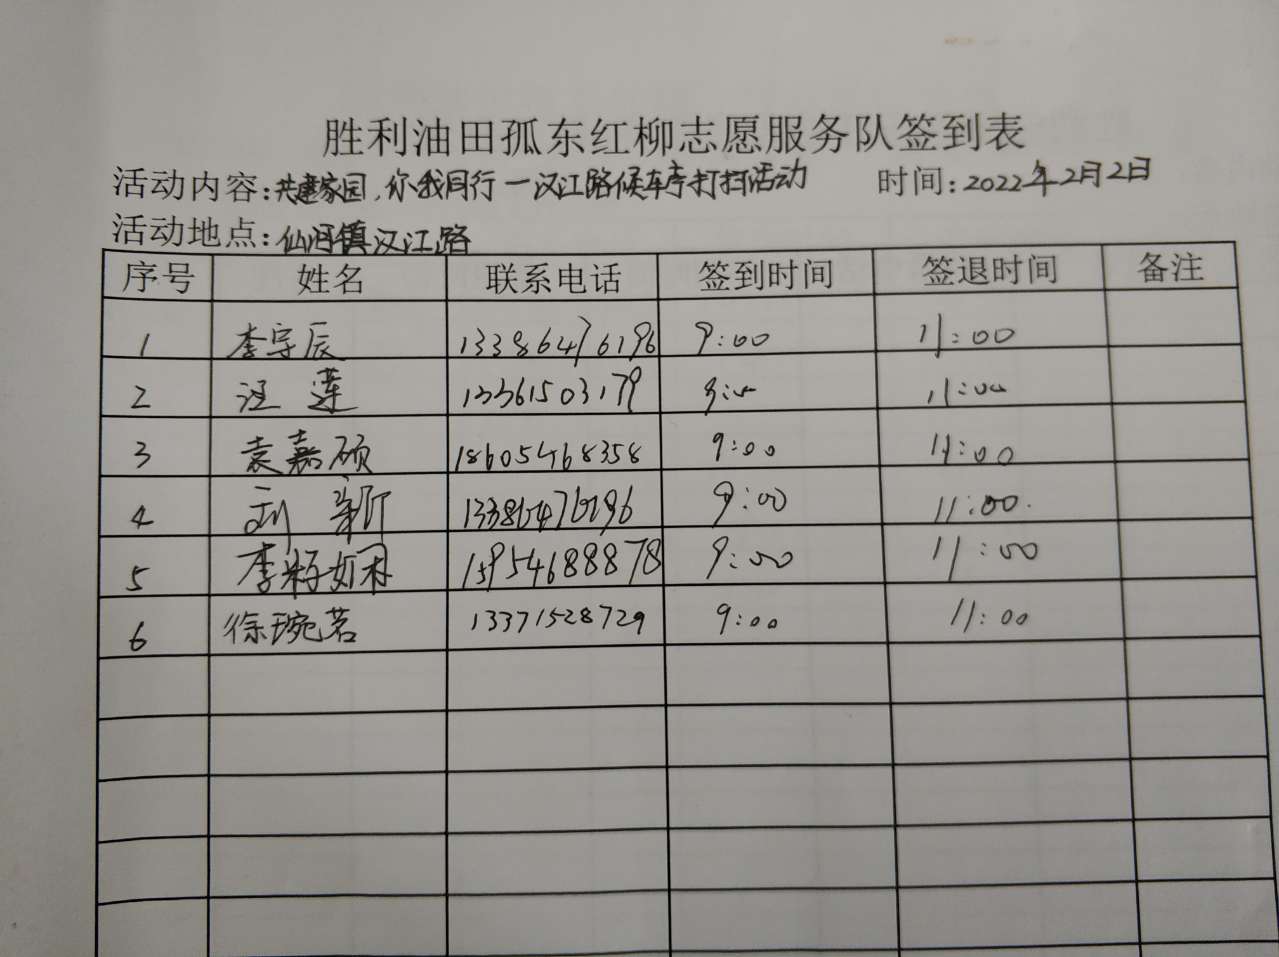 胜利油田孤东红柳志愿服务队签到表
活动内容:共建家园,你我同行—汉江路候车亭打扫活动 时间:2022年2月2日
活动地点:仙河镇汉江路
序号 姓名 联系电话 签到时间 签退时间 备注
1 李宇辰 13386476196 9:00 11:00
2 汪莲 13361503179 9:00 11:00
3 袁嘉硕 18605468358 9:00 11:00
4 刘新 13386476196 9:00 11:00
5 李籽如 15954688878 9:00 11:00
6 徐琬茗 13371528729 9:00 11:00